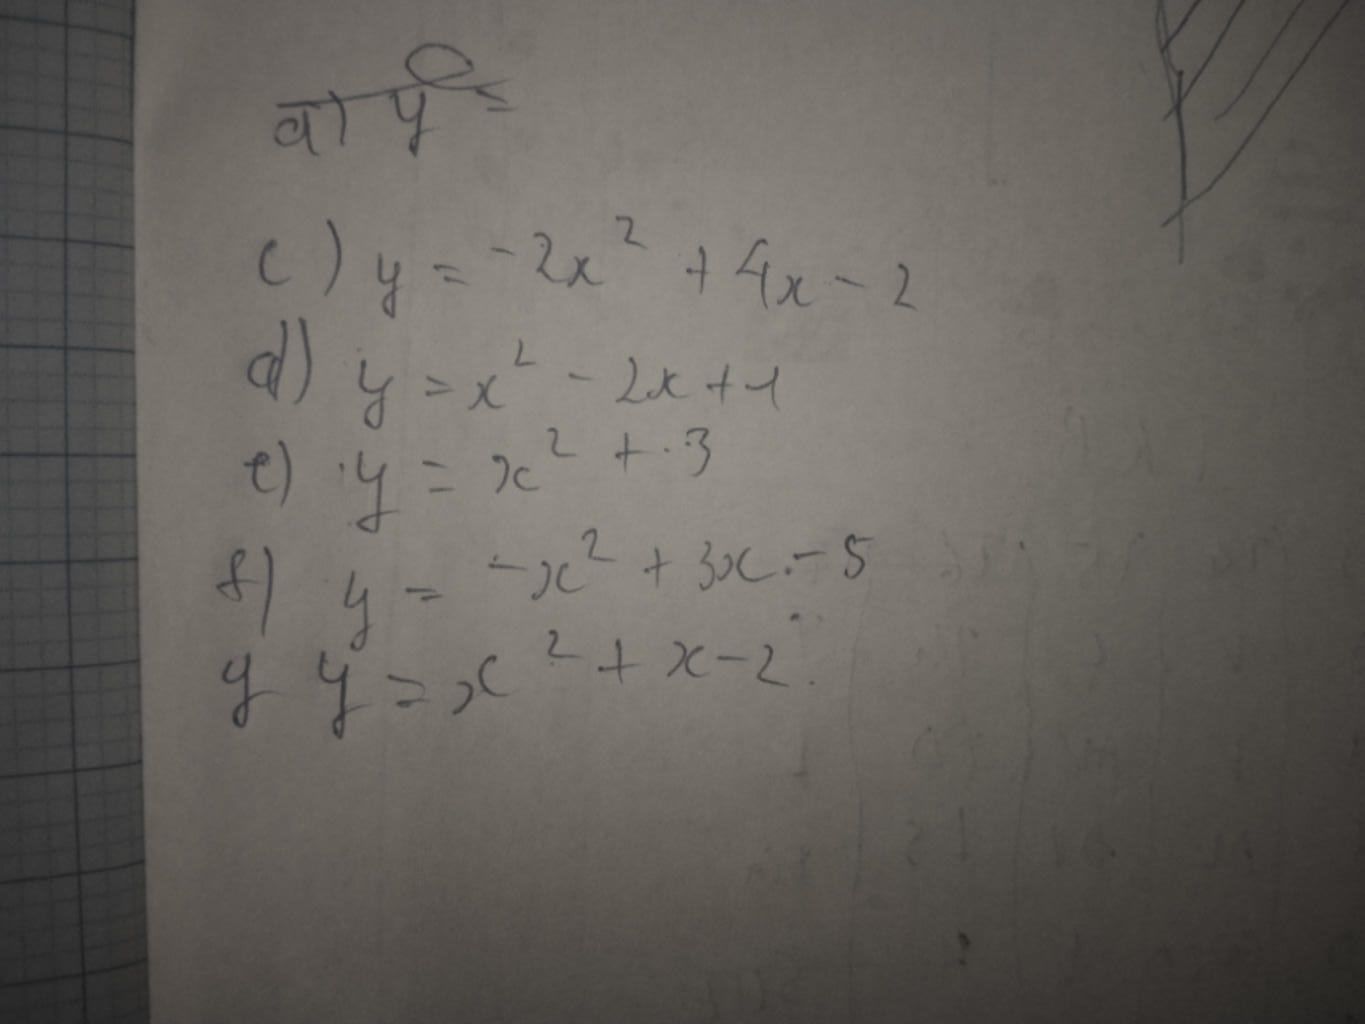 a) y =
c) y = -2x² + 4x - 2
d) y = x² - 2x + 1
e) y = x² + 3
f) y = -x² + 3x - 5
g y = x² + x - 2